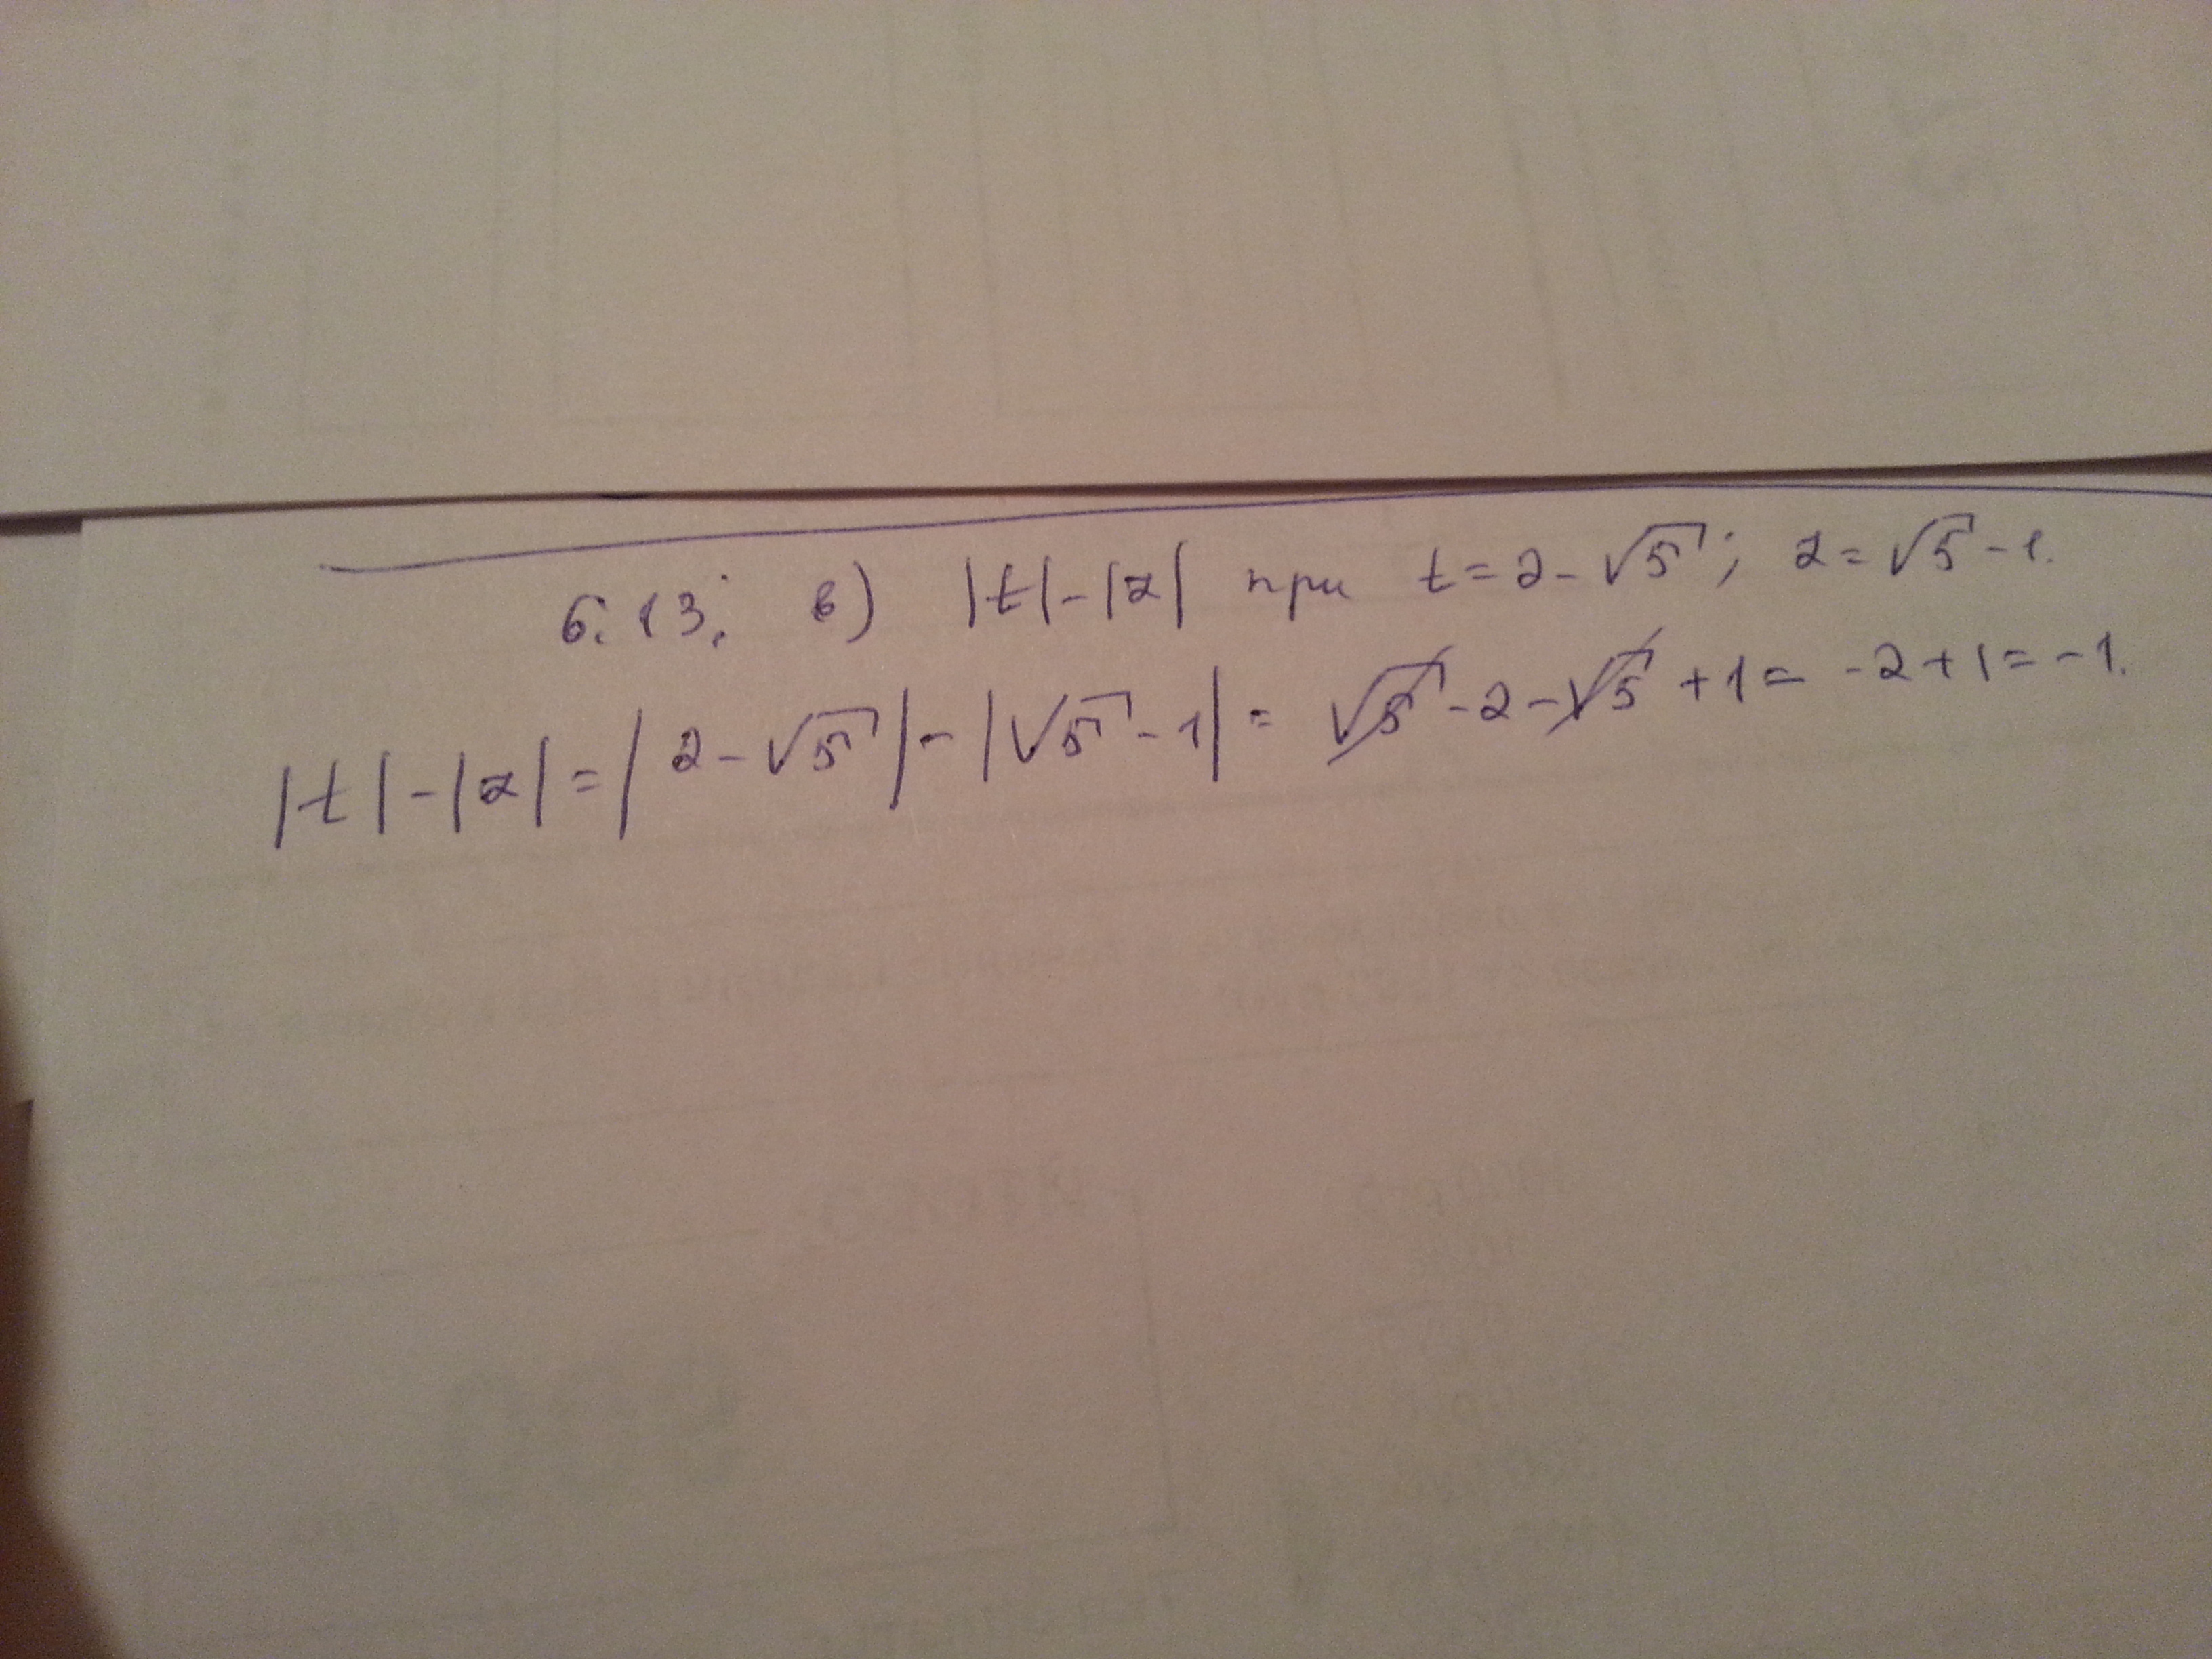 6.13. в) |t|-|z| при t=2-√5; z=√5-1.
|t|-|z|=|2-√5|-|√5-1|=√5-2-√5+1=-2+1=-1.